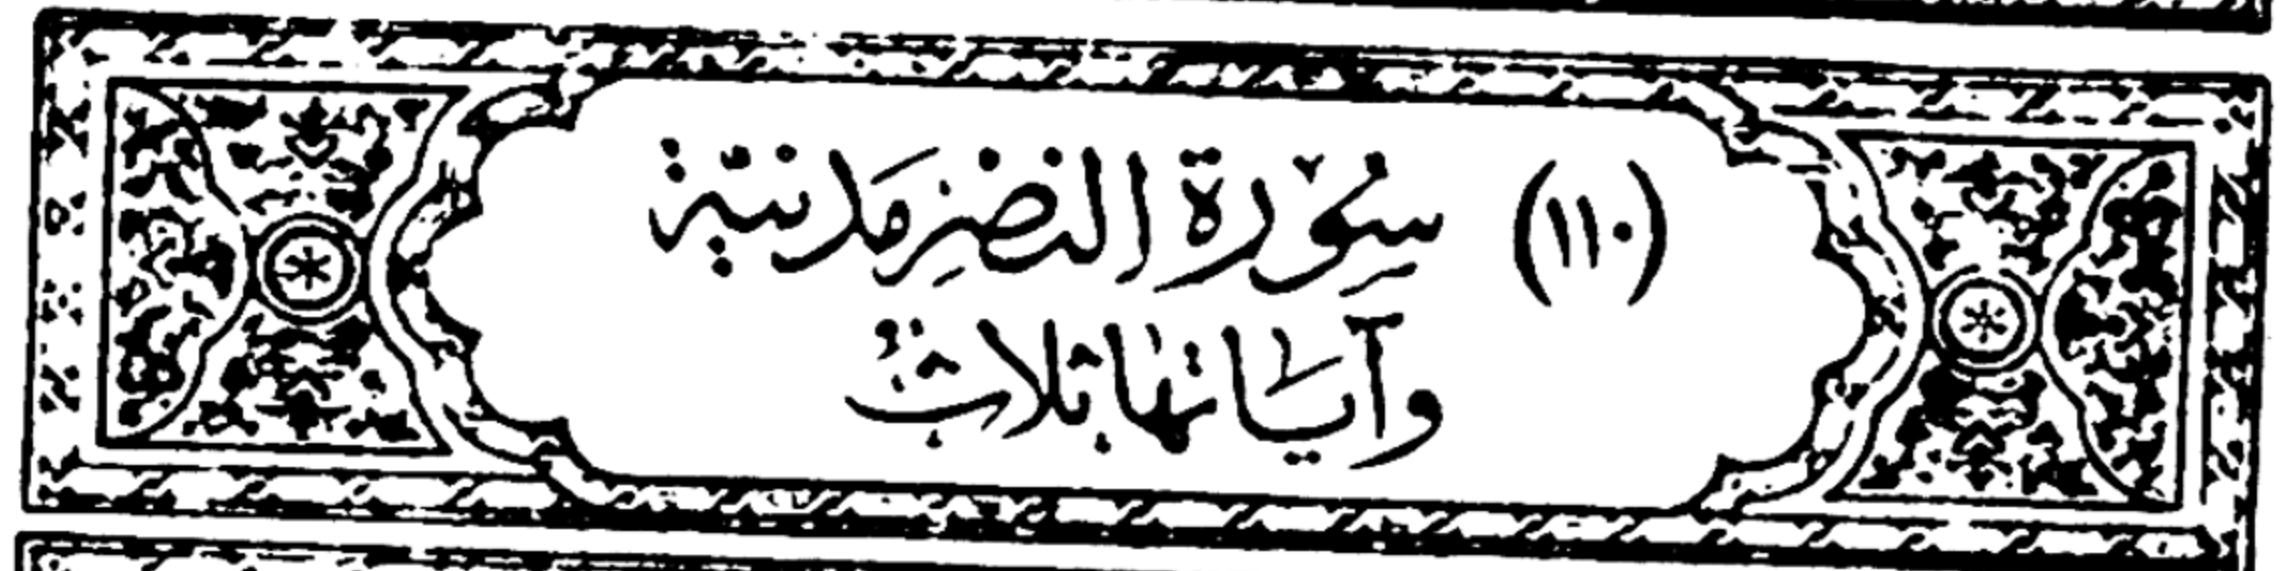 (١١٠) سورة النصر مدنية
وآياتها ثلاث